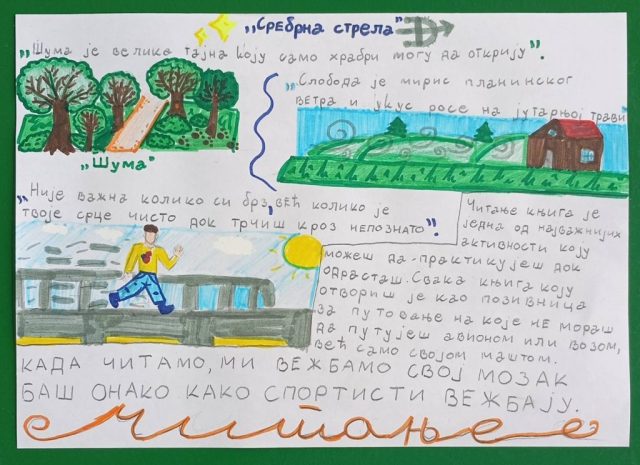 „Сребрна стрела"
„Шума је велика тајна коју само храбри могу да открију".
„Слобода је мирис планинског
ветра и укус росе на јутарњој трави
„Шума"
„Није важна колико си брз, већ колико је
твоје срце чисто док трчиш кроз непознато".
Читање књига је
једна од најважнијих
активности коју
можеш да практикујеш док
одрасташ. Свака књига коју
отвориш је као позивница
за путовање на које не мораш
да путујеш авионом или возом,
већ само својом маштом.
КАДА ЧИТАМО, МИ ВЕЖБАМО СВОЈ МОЗАК
БАШ ОНАКО КАКО СПОРТИСТИ ВЕЖБАЈУ.
читање